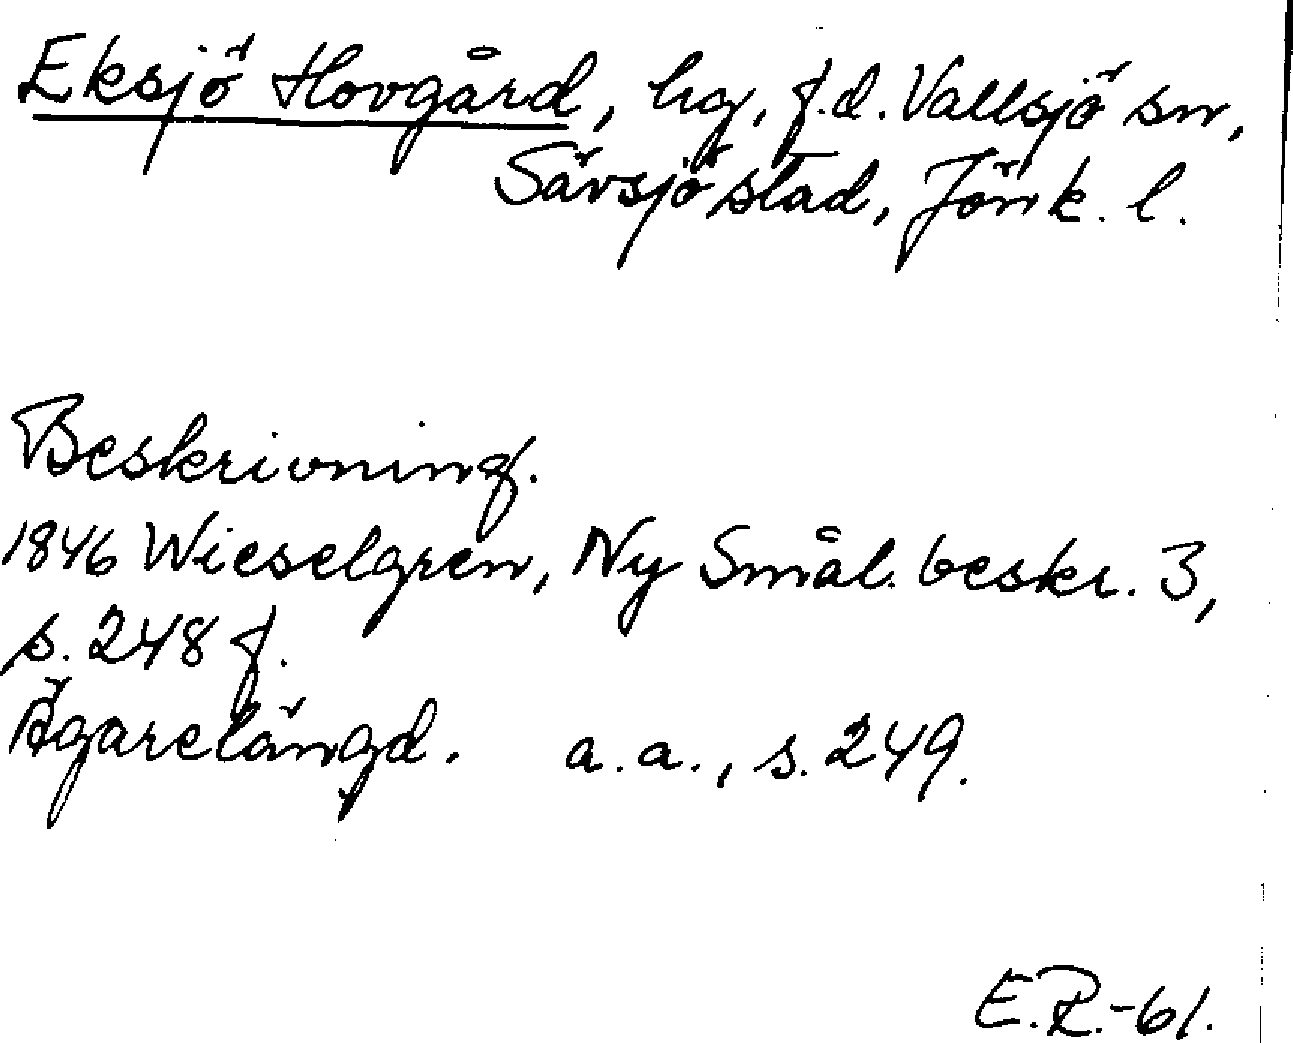 Eksjö Hovgård, hg, f.d. Vallsjö sn,
Sävsjö stad, Jönk. l.
Beskrivning.
1846 Wieselgren, Ny Smål. beskr. 3,
s. 248 f.
Ägarelängd. a.a., s. 249.
E.R.-61.